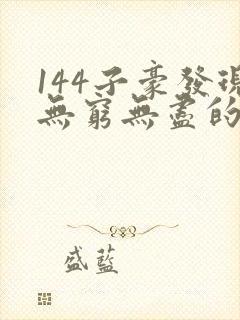 144子豪發現
無窮無盡的
盛藍